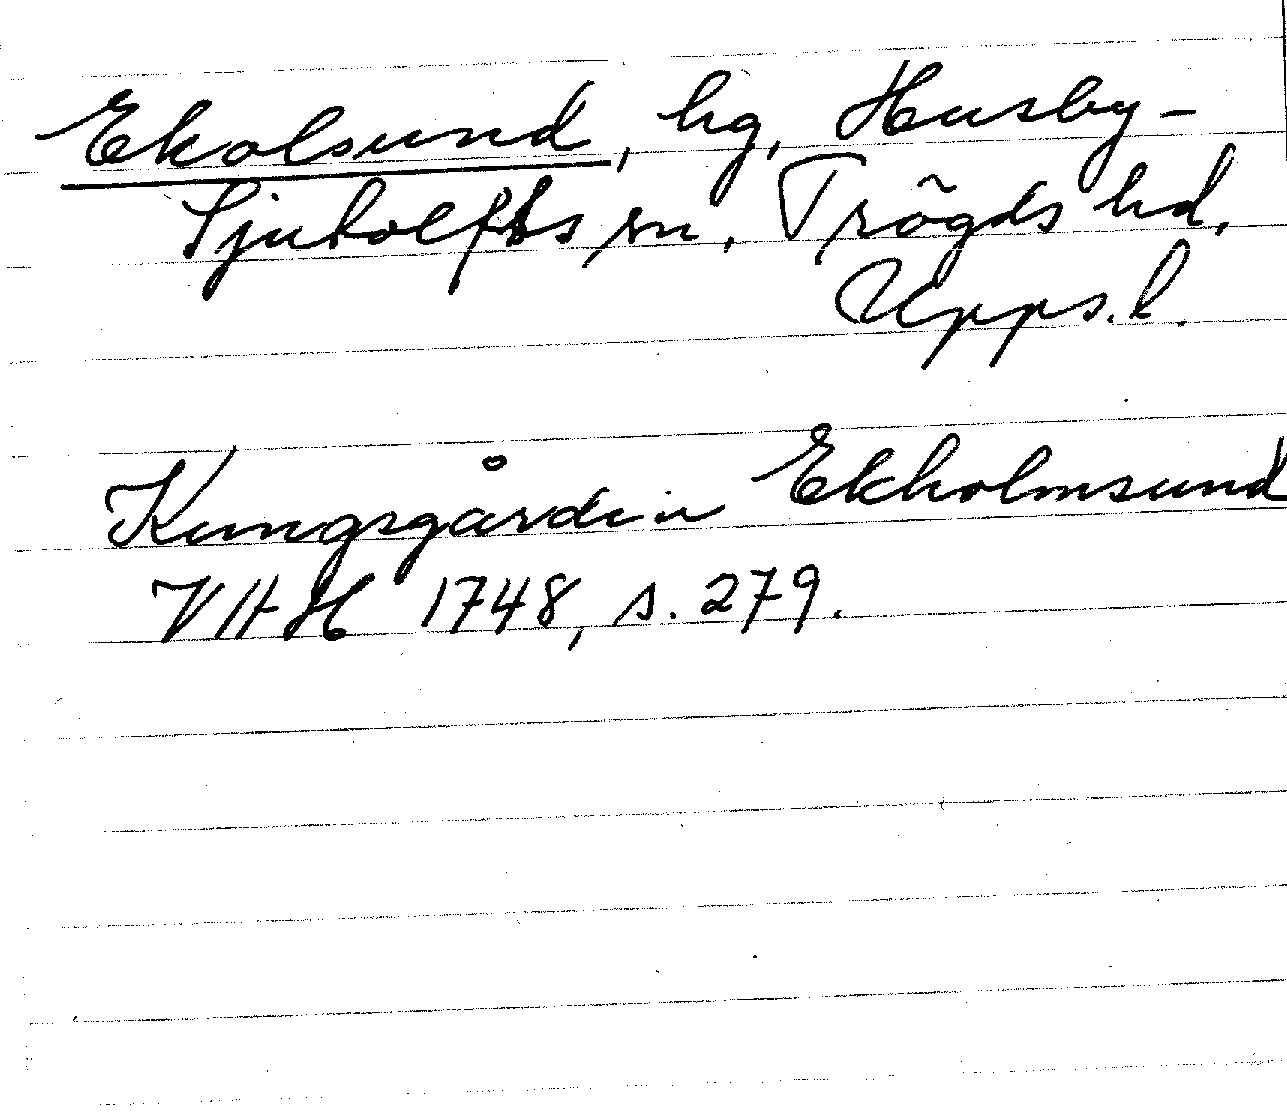 Ekolsund, hg, Husby-
Sjutolfts sn, Trögds hd,
Upps. l.
Kungsgården Ekholmsund
VHH 1748, s. 279.